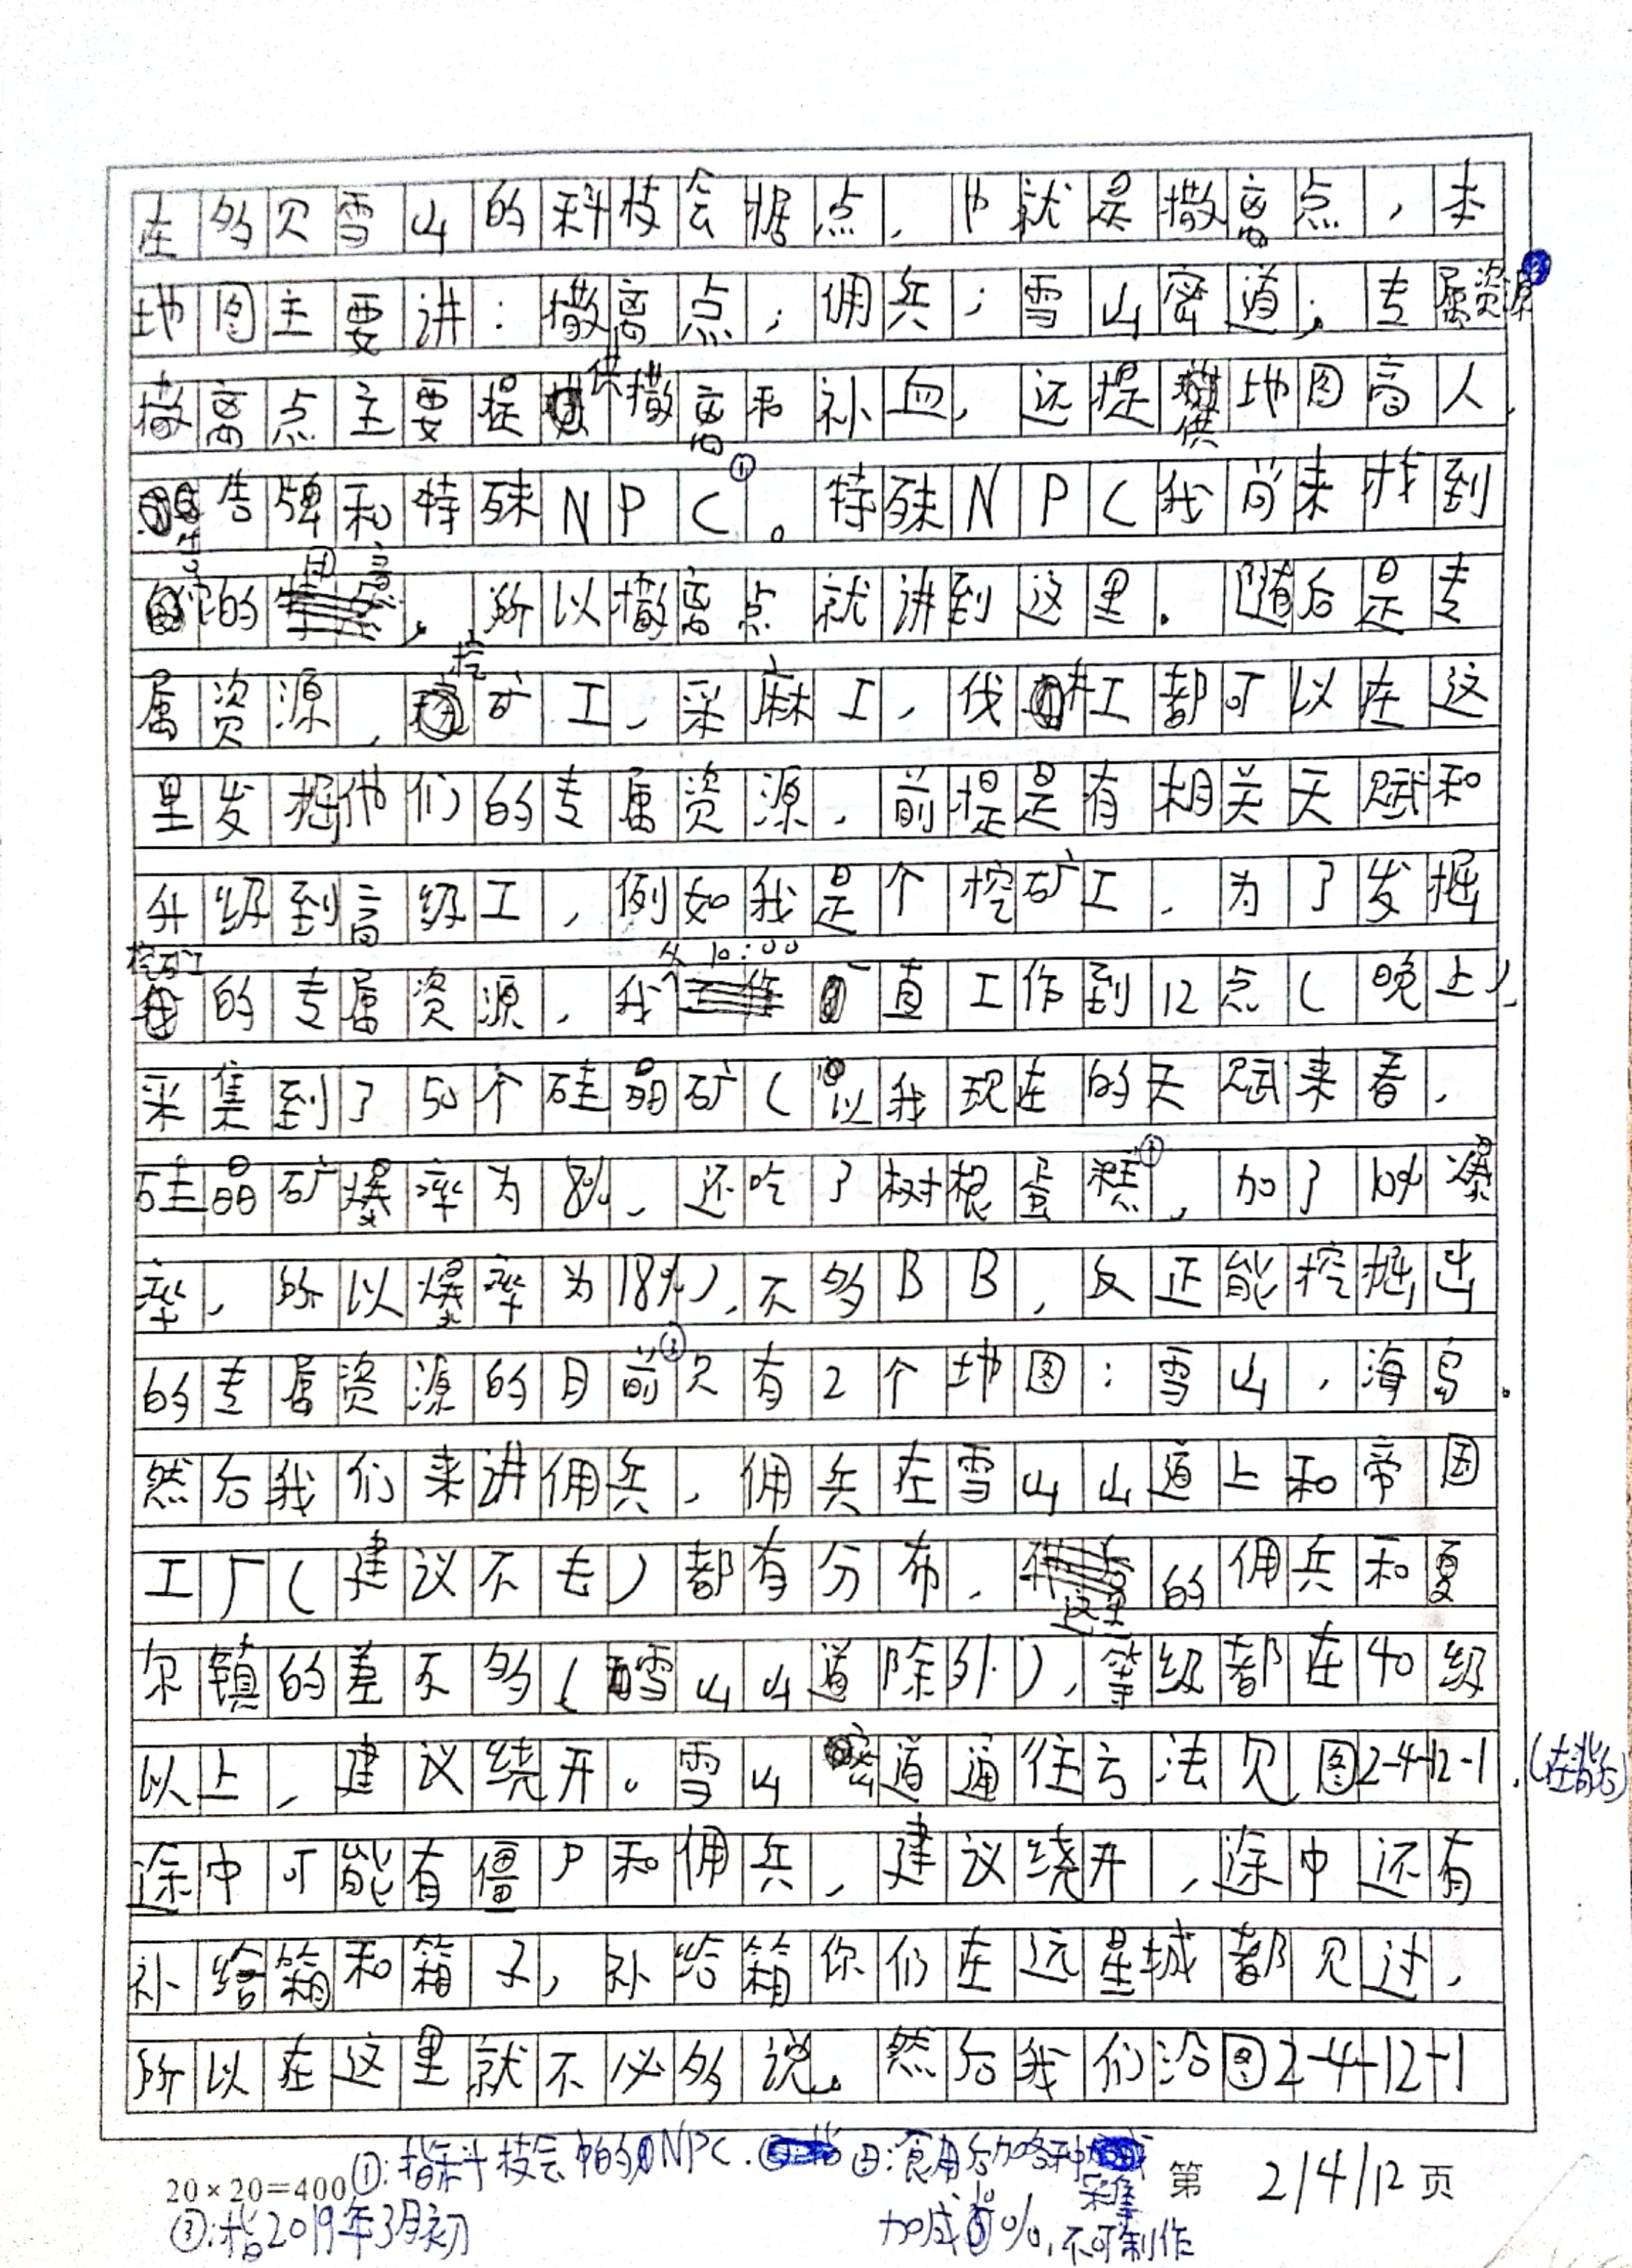 在多贝雪山的科技会据点，也就是撤离点，本
地图主要讲：撤离点；佣兵；雪山密道；专属资源
撤离点主要提供撤离和补血，还提供地图高人，
告牌和特殊NPC①。特殊NPC我尚未找到
它的用意，所以撤离点就讲到这里。随后是专
属资源，挖矿工，采麻工，伐木工都可以在这
里发掘他们的专属资源，前提是有相关天赋和
升级到高级工，例如我是个挖矿工，为了发掘
挖矿工的专属资源，我从10:00一直工作到12点（晚上），
采集到了50个硅晶矿（以我现在的天赋来看，
硅晶矿爆率为8%，还吃了树根蛋糕②，加了10%爆
率，所以爆率为18%），不多BB，反正能挖掘出
的专属资源的目前③只有2个地图：雪山，海岛。
然后我们来讲佣兵，佣兵在雪山山道上和帝国
工厂（建议不去）都有分布，这里的佣兵和夏
尔镇的差不多（雪山山道除外），等级都在40级
以上，建议绕开。雪山密道通往方法见图2-4-12-1，（在背后）
途中可能有僵尸和佣兵，建议绕开，途中还有
补给箱和箱子，补给箱你们在远星城都见过，
所以在这里就不必多说。然后我们沿图2-4-12-1
①：指科技会中的NPC. ②：食用后加各种采集
20×20=400 第2/4/12页
③：指2019年3月初 加成10%，不可制作